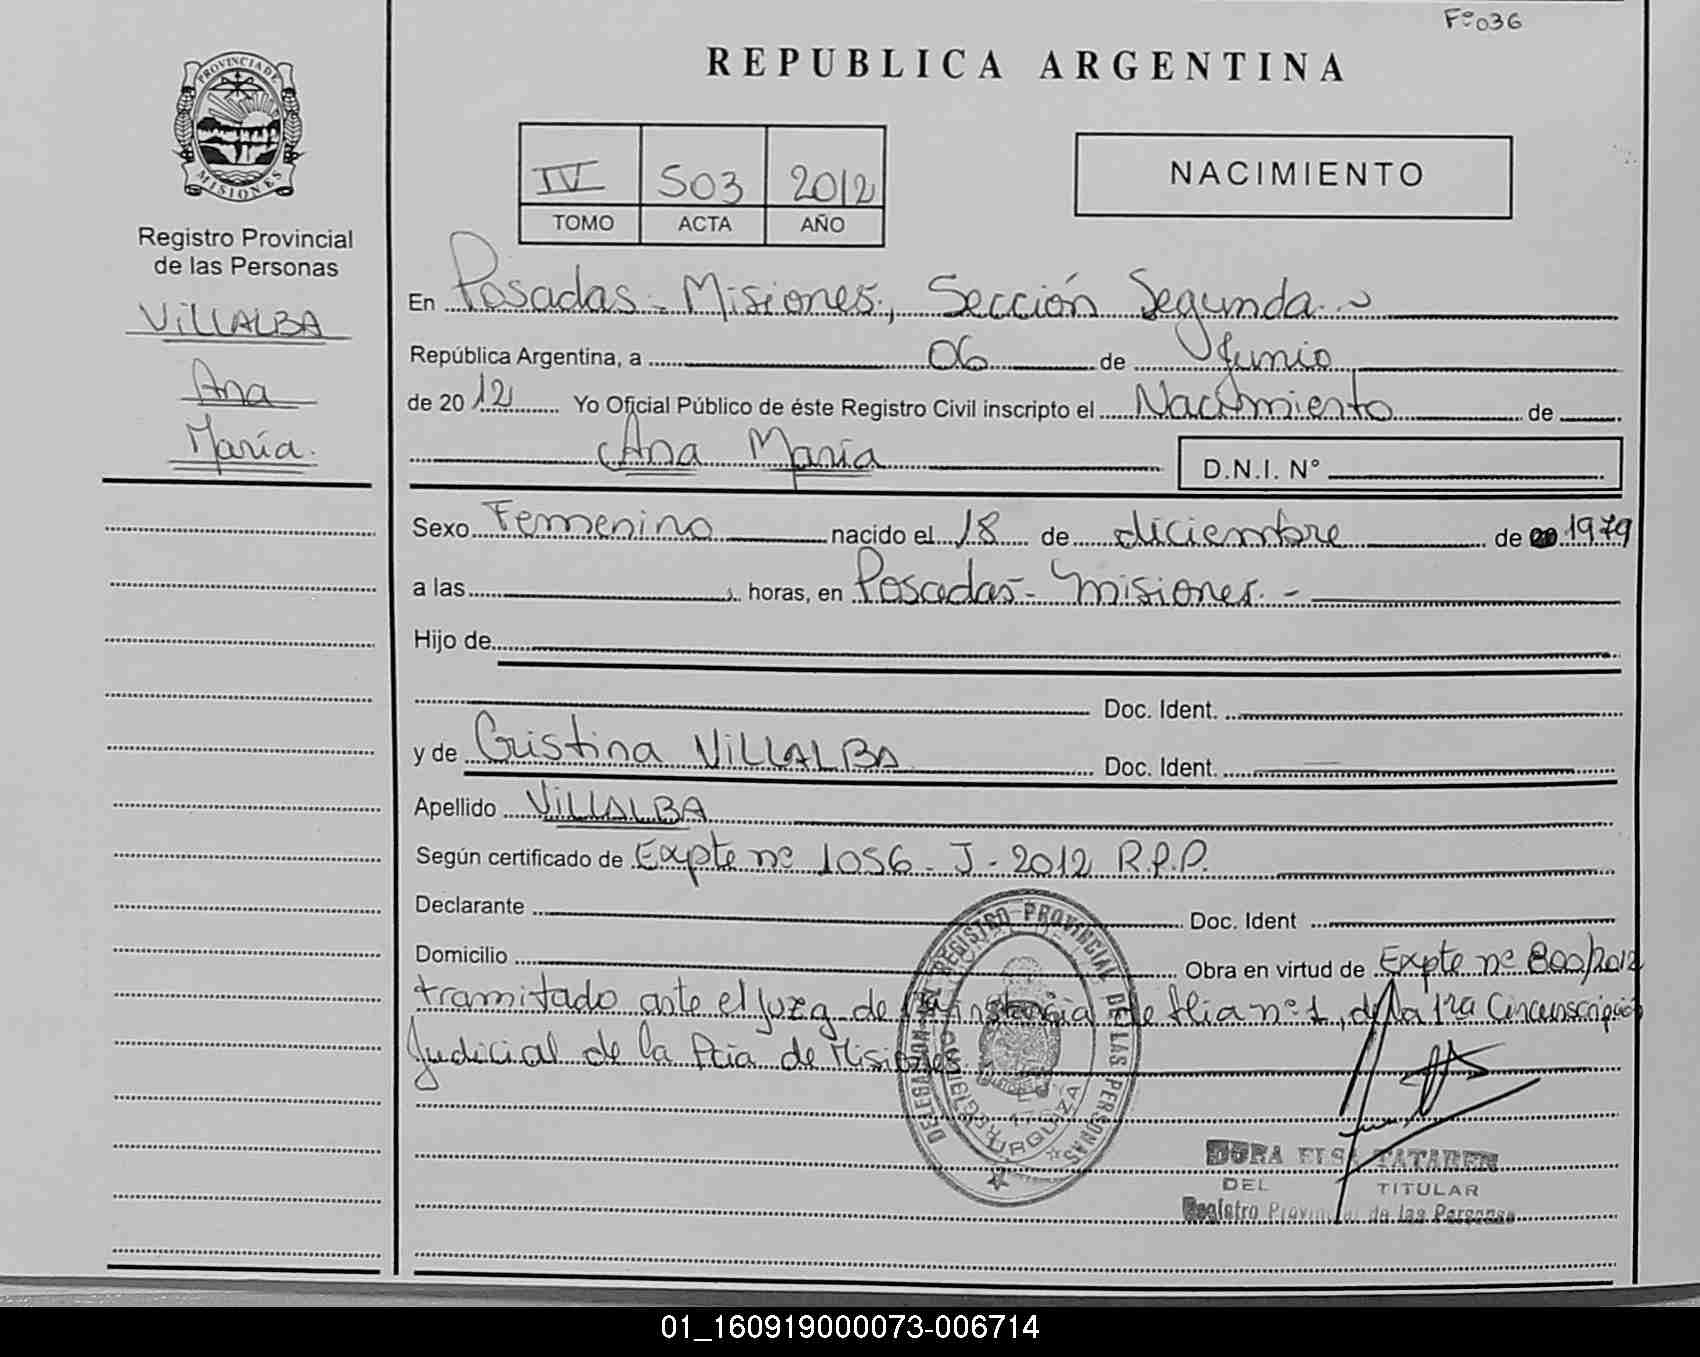 Fº 036
REPUBLICA ARGENTINA
PROVINCIA DE
MISIONES
Registro Provincial
de las Personas
VILLALBA
Ana
María.
IV 503 2012
TOMO ACTA AÑO
NACIMIENTO
En Posadas - Misiones, Sección Segunda
República Argentina, a 06 de Junio
de 2012 Yo Oficial Público de éste Registro Civil inscripto el Nacimiento de
Ana María
D.N.I. N°
Sexo Femenino nacido el 18 de diciembre de 1979
a las horas, en Posadas - Misiones. -
Hijo de
Doc. Ident.
y de Cristina VILLALBA Doc. Ident.
Apellido VILLALBA
Según certificado de Expte nº 1056 - J - 2012 R.P.P.
Declarante Doc. Ident
Domicilio Obra en virtud de Expte nº 800/2012
tramitado ante el Juzg de 1ra instancia de flia nº 1, de la 1ra Circunscripción
Judicial de la Pcia de Misiones
DELEGACION REGISTRO PROVINCIAL DE LAS PERSONAS
URQUIZA
DORA ELSA TATAREN
DEL TITULAR
Registro Provincial de las Personas
01_160919000073-006714